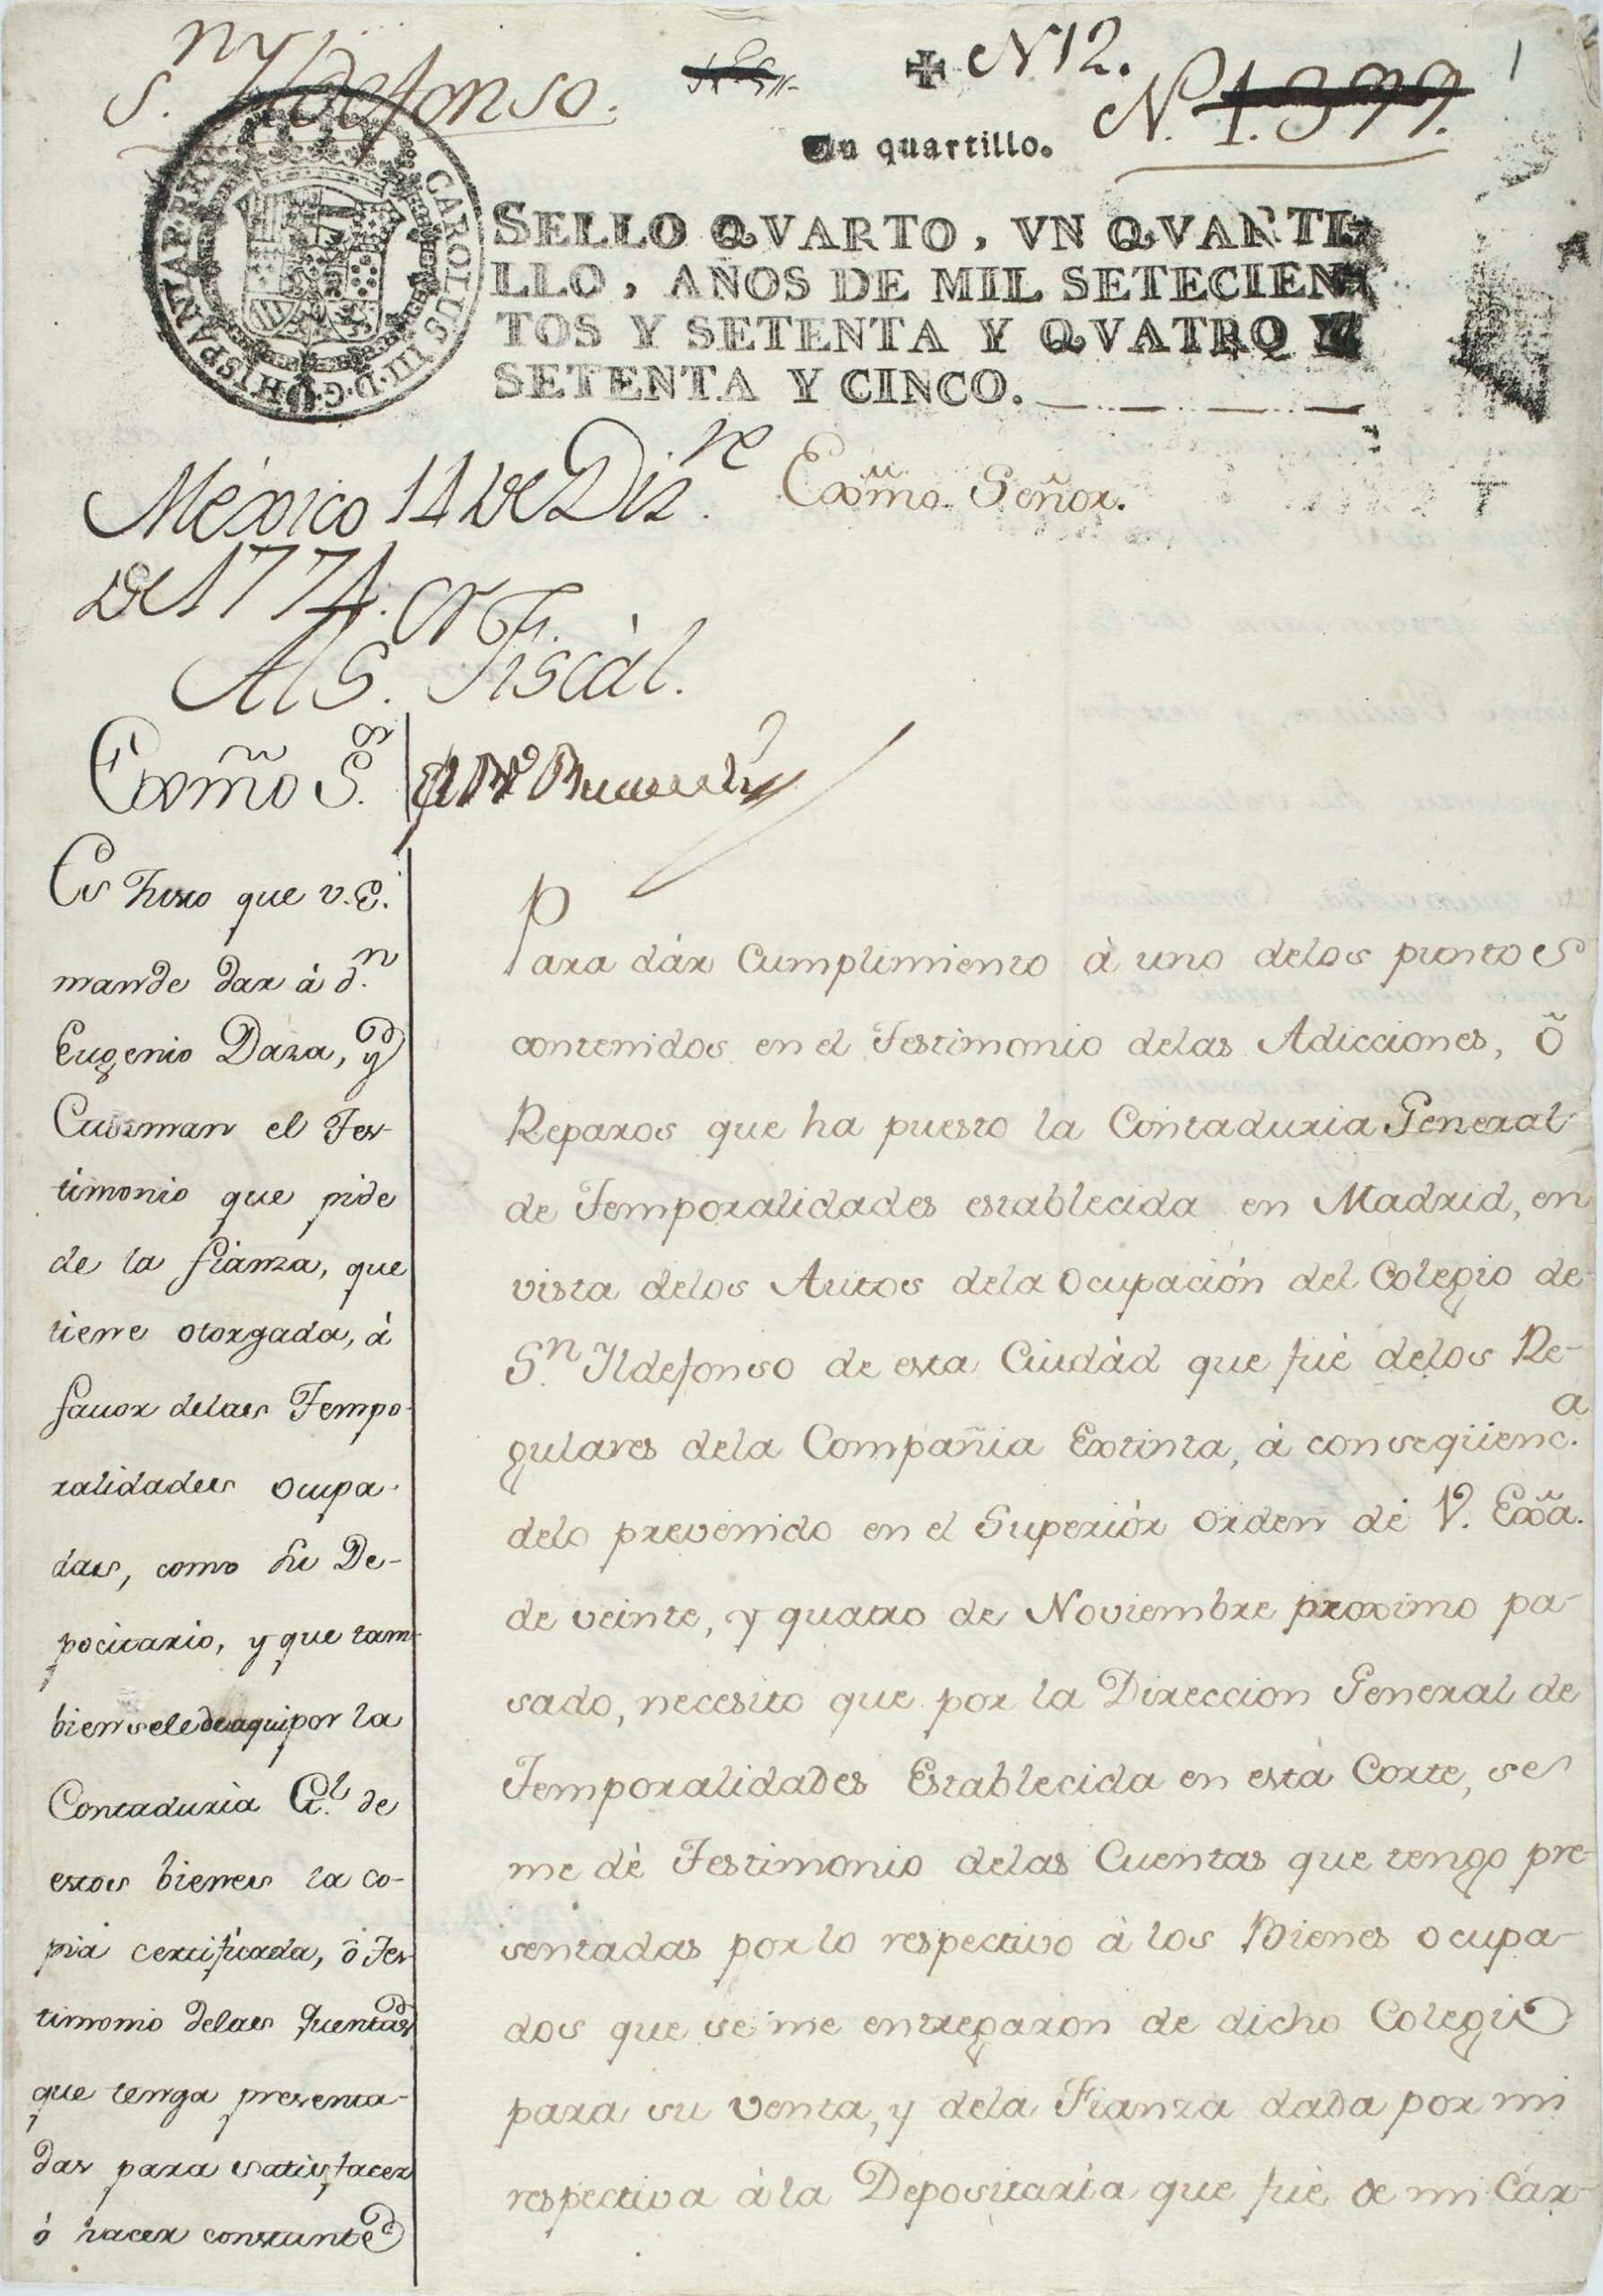 S.n Yldefonso.
N 12.
N. 1.399.
1
Un quartillo.
HISPANIAR. REX. CAROLUS III. D. G.
SELLO QVARTO, VN QVARTI-
LLO, AÑOS DE MIL SETECIEN-
TOS Y SETENTA Y QVATRO Y
SETENTA Y CINCO.
Mexico 14 de Diz.re
de 1774.
Al S.or Fiscàl.
Exmõ S.or
Es Justo que V.E.
mande dar à d.n
Eugenio Daza, y
Guzman el Tes-
timonio que pide
de la fianza, que
tiene otorgada, à
fauor delas Tempo-
ralidades ocupa-
das, como su De-
pocitario, y que tam-
bien sele de aqui por la
Contaduria G.l de
estos bienes la co-
pia certificada, ô Tes-
timonio delas Quentas
que tenga presenta-
das para satisfacer
ó hacer constante
Exmo. Señor.
Para dár Cumplimiento à uno delos puntos
contenidos en el Testimonio delas Adicciones, ò
Reparos que ha puesto la Contaduria General
de Temporalidades establecida en Madrid, en
vista delos Autos dela ocupación del Colegio de
S.n Yldefonso de esta Ciudàd que fué delos Re-
gulares dela Compañia Extinta, á conseqüenc.a
delo prevenido en el Superiór orden de V. Exã.
de veinte, y quatro de Noviembre proximo pa-
sado, necesito que por la Direccion General de
Temporalidades Establecida en esta Corte, se
me dè Testimonio delas Cuentas que tengo pre-
sentadas por lo respectivo à los Bienes ocupa-
dos que se me entregaron de dicho Colegio
para su venta, y dela Fianza dada por mi
respectiva à la Depositaría que fué de mi Car-